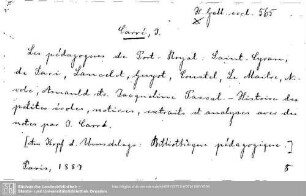 H. Gall. eccl. 565
Carré, I.
Les pédagogues de Port-Royal. Saint-Cyran,
de Saci, Lancelot, Guyot, Coustel, Le Maitre, Ni-
cole, Arnauld etc. Jacqueline Pascal. - Histoire des
petites écoles, notices, extraits et analyses avec des
notes par I. Carré.
[Im Kopf d. Umschlags: Bibliothèque pédagogique.]
Paris, 1887
8